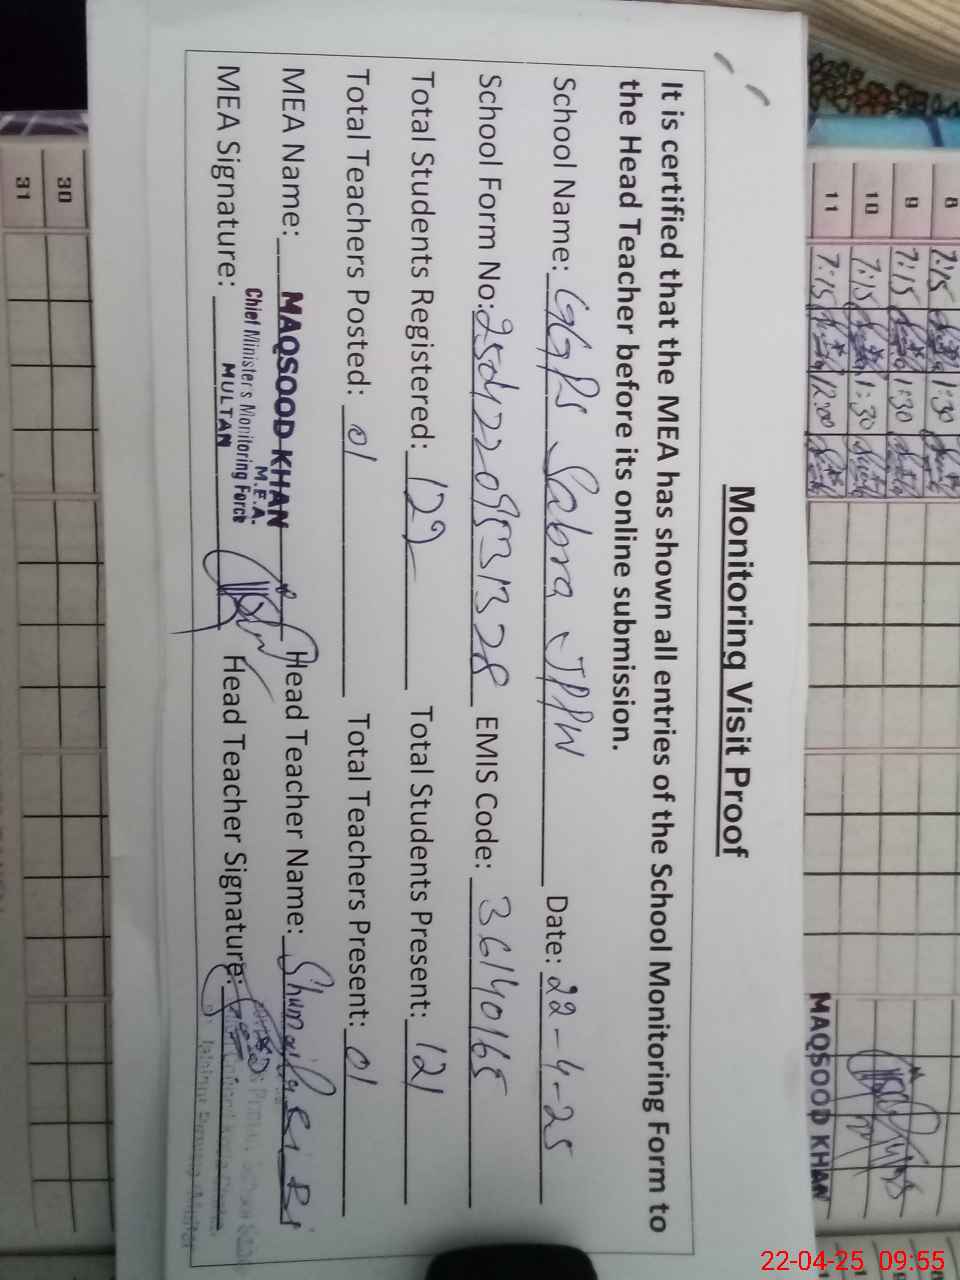 Monitoring Visit Proof
It is certified that the MEA has shown all entries of the School Monitoring Form to
the Head Teacher before its online submission.
School Name: GGPS Sabra JPPW Date: 22-4-25
School Form No: EMIS Code: 36140165
Total Students Registered: 129 Total Students Present: 121
Total Teachers Posted: 01 Total Teachers Present: 01
MEA Name: MAQSOOD KHAN Head Teacher Name: Shumaila Bi Bi
M.E.A.
Chief Minister's Monitoring Force
MULTAN
MEA Signature: Head Teacher Signature:
8 7:15 1:30
9 7:15 1:30
10 7:15 1:30
11 7:15 12:00
MAQSOOD KHAN
30
31
22-04-25 09:55